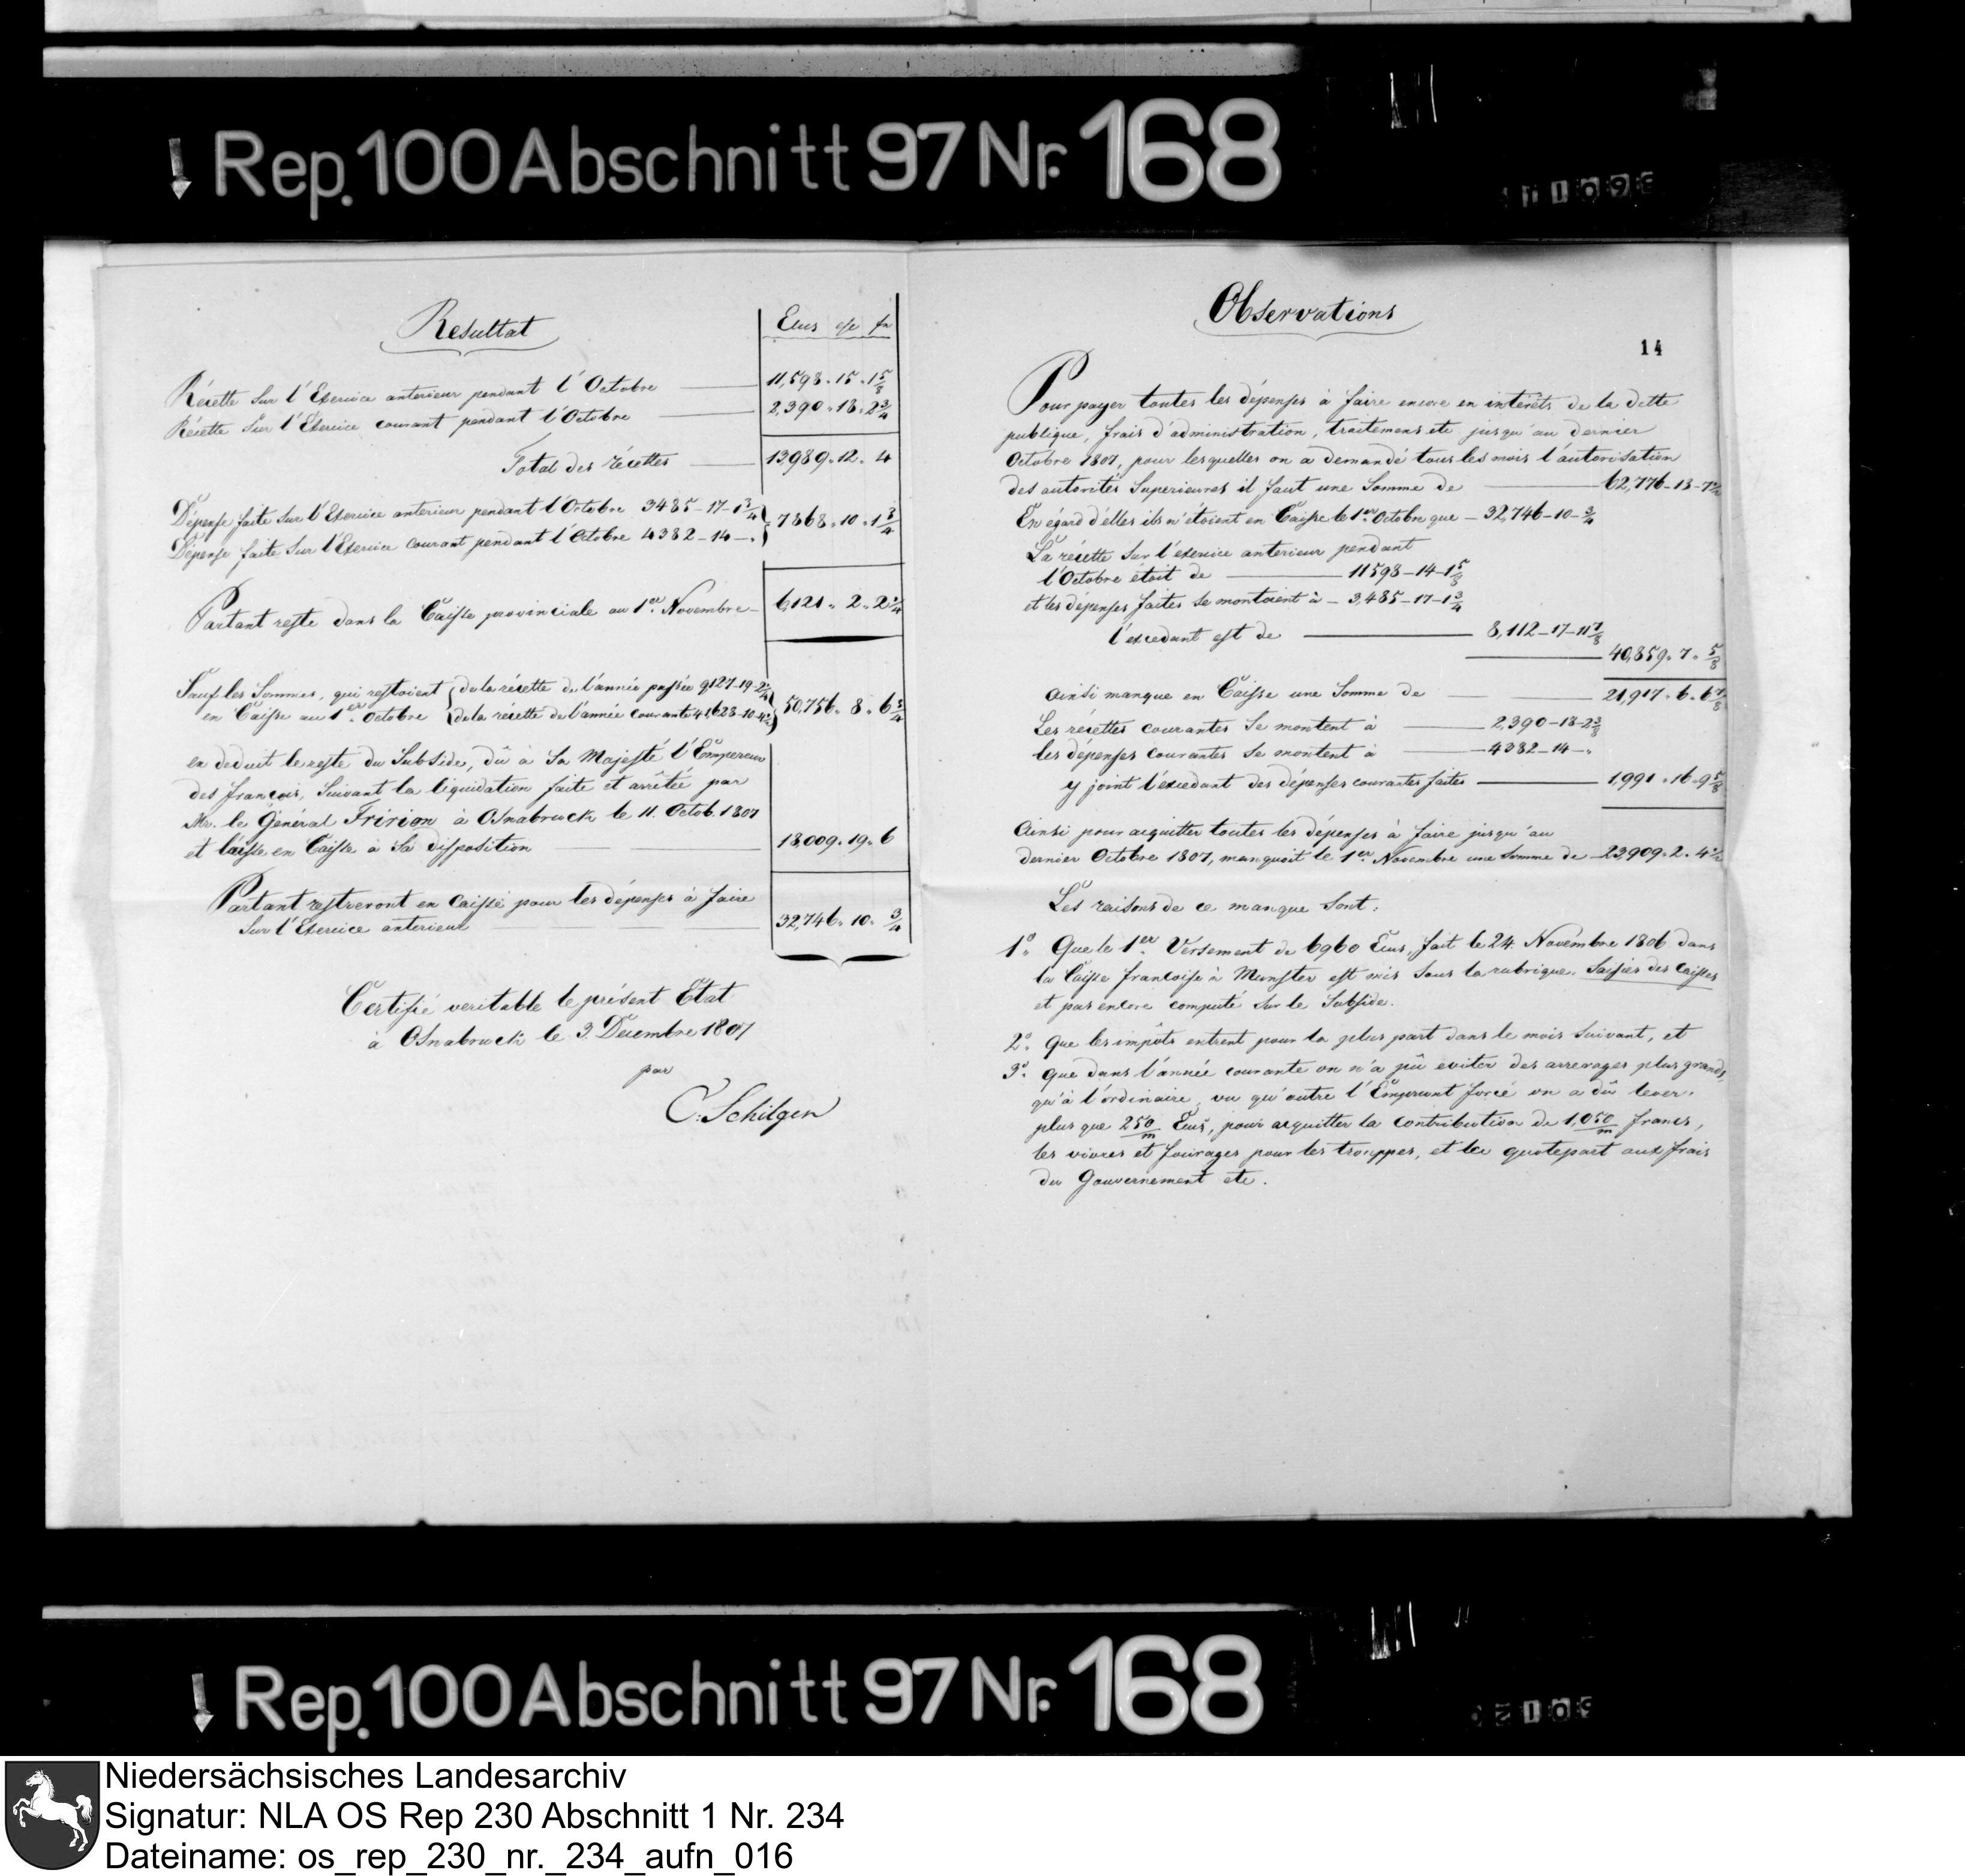 Rep. 100 Abschnitt 97 Nr. 168
Resultat
Ecus
Récette sur l'Exercice anterieur pendant l'Octobre 11,598 " 15 " 1 5/8
Récette sur l'Exercice courant pendant l'Octobre 2,390 " 18 " 2 3/4
Total des récettes 13,989 " 12 " 4
Dépense faite sur l'Exercice anterieur pendant l'Octobre 3485-17-1 3/4
Dépense faite sur l'Exercice courant pendant l'Octobre 4382-14-"
7868 " 10 " 1 3/4
Partant reste dans la Caisse provinciale au 1er Novembre 6,121 " 2 " 2 1/4
Sauf les Sommes, qui restoient de la récette de l'année passée 9127-19-2 1/4
en Caisse au 1er Octobre de la récette de l'année courante 41,628-10-4 1/2
50,756 " 8 " 6 3/4
en deduit le reste du Subside, dû a Sa Majesté l'Empereur
des françois, suivant la liquidation faite et arrêtée par
Mr. le Général Fririon à Osnabruck le 11. Octob. 1807
et laissé en Caisse à Sa disposition 18,009 " 19 " 6
Partant restreront en Caisse pour les dépenses à faire
sur l'Exercice anterieur 32,746 " 10 " 3/4
Certifié veritable le présent Etat
à Osnabruck le 3. Decembre 1807
par
C. Schilgen
Observations
14
Pour payer toutes les dépenses à faire encore en intérêts de la dette
publique, frais d'administration, traitemens etc jusqu'au dernier
Octobre 1807, pour lesquelles on a demandé tous les mois l'autorisation
des autorités Superieures il faut une Somme de 62,776-13-7 1/2
En égard d'elles ils n'étoient en Caisse le 1er Octobre que 32,746-10-3/4
La récette sur l'exercice anterieur pendant
l'Octobre étoit de 11598-14-1 5/8
et les dépenses faites se montoient à 3,485-17-1 3/4
l'excedant est de 8,112-17-11 7/8
40,859 " 7 " 5/8
Ainsi manque en Caisse une Somme de 21,917 " 6 " 6 7/8
Les récettes courantes se montent à 2,390-18-2 3/8
les dépenses courantes se montent à 4382-14-"
y joint l'excedant des dépenses courantes faites 1,991 " 16 " 9 5/8
Ainsi pour acquitter toutes les dépenses à faire jusqu'au
dernier Octobre 1807, manquoit le 1er Novembre une Somme de 23,909 " 2 " 4 1/2
Les raisons de ce manque sont:
1° Que le 1er Versement de 6960 Ecus, fait le 24. Novembre 1806 dans
la Caisse françoise à Munster est mis sous la rubrique Saisies des Caisses
et pas encore computé sur le Subside.
2° Que les impôts entrent pour la plus part dans le mois suivant, et
3° que dans l'année courante on n'a pû eviter des arrerages plus grands,
qu'à l'ordinaire, vu qu'outre l'Emprunt forcé on a dû lever
plus que 250/m Ecus, pour acquitter la Contribution de 1,050/m francs,
les vivres et fourages pour les trouppes, et la quotepart aux frais
du Gouvernement etc.
Rep. 100 Abschnitt 97 Nr. 168
Niedersächsisches Landesarchiv
Signatur: NLA OS Rep 230 Abschnitt 1 Nr. 234
Dateiname: os_rep_230_nr._234_aufn_016